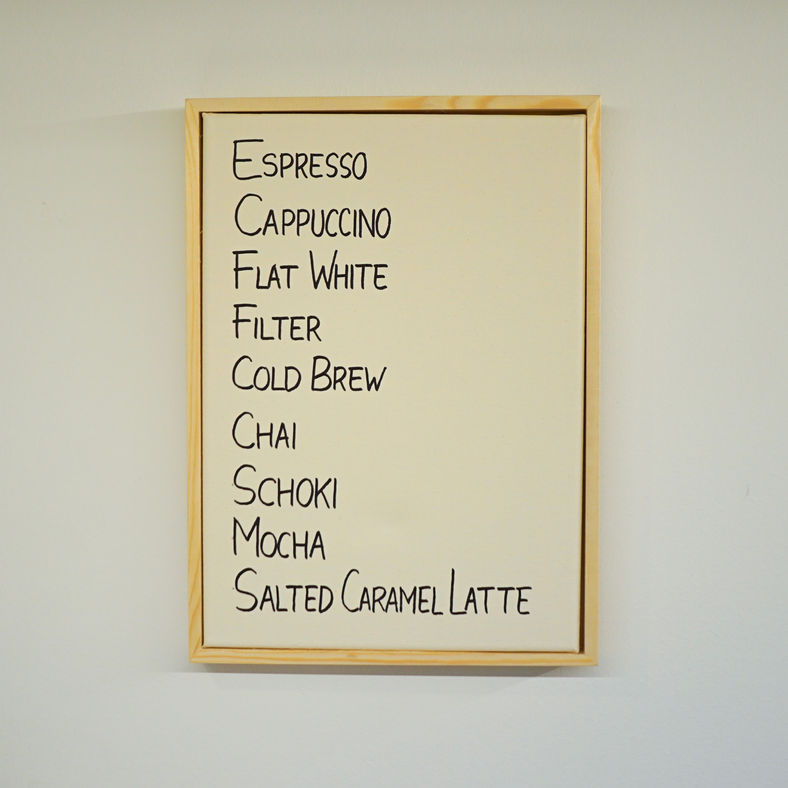 Espresso
Cappuccino
Flat White
Filter
Cold Brew
Chai
Schoki
Mocha
Salted Caramel Latte